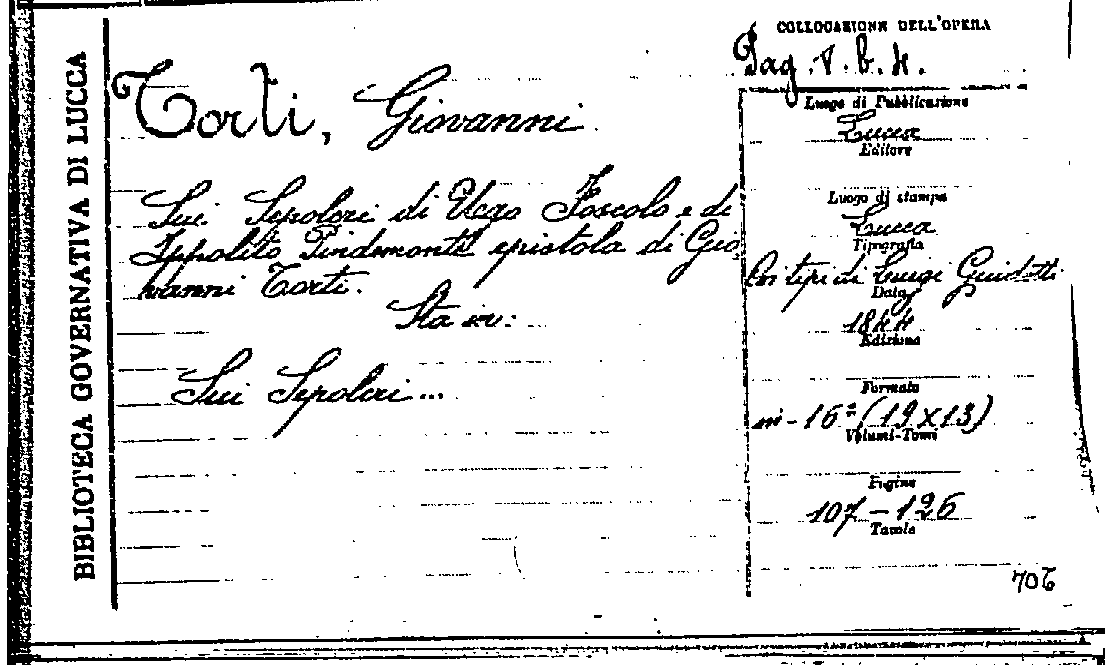 BIBLIOTECA GOVERNATIVA DI LUCCA
COLLOCAZIONE DELL'OPERA
Pag. 1. b. 4.
Torti, Giovanni.
Sui Sepolcri di Ugo Foscolo e di
Ippolito Pindemonte epistola di Gio
vanni Torti.
Sta in:
Sui Sepolcri...
Luogo di Pubblicazione
Lucca
Editore
Luogo di stampa
Lucca
Tipografia
Coi tipi di Luigi Guidotti
Data
1844
Edizione
Formato
in-16° (19x13)
Volumi-Tomi
Pagine
107-126
Tavole
706